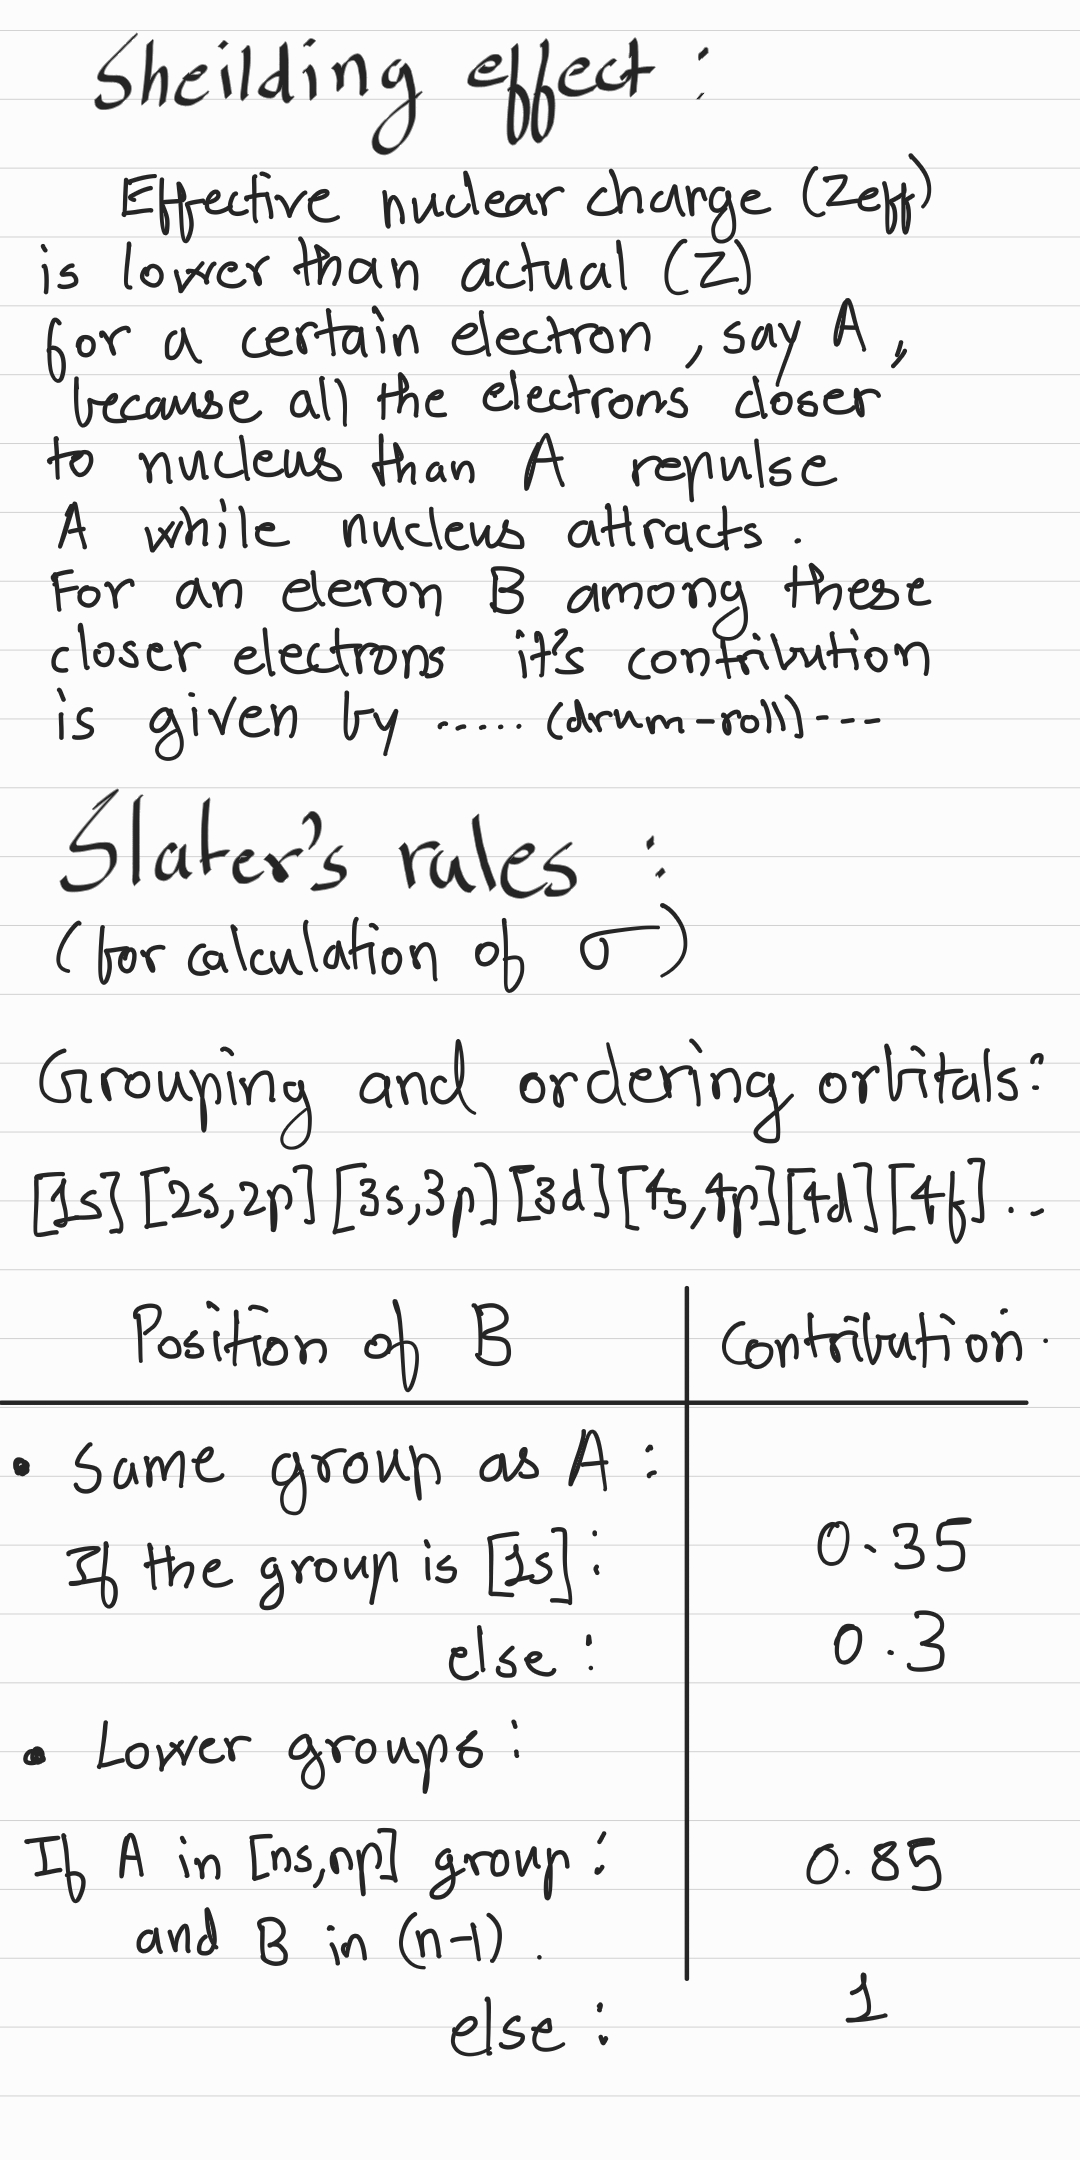 Sheilding effect :
Effective nuclear charge (Zeff)
is lower than actual (Z)
for a certain electron , say A ,
because all the electrons closer
to nucleus than A repulse
A while nucleus attracts .
For an eleron B among these
closer electrons it's contribution
is given by ..... (drum-roll)----
Slater's rules :
(for calculation of σ)
Grouping and ordering orbitals:
[1s] [2s,2p] [3s,3p) [3d] [4s,4p] [4d] [4f] ...
Position of B Contribution.
• Same group as A :
If the group is [1s] : 0.35
else : 0.3
• Lower groups :
If A in [ns,np] group : 0.85
and B in (n-1) .
else : 1